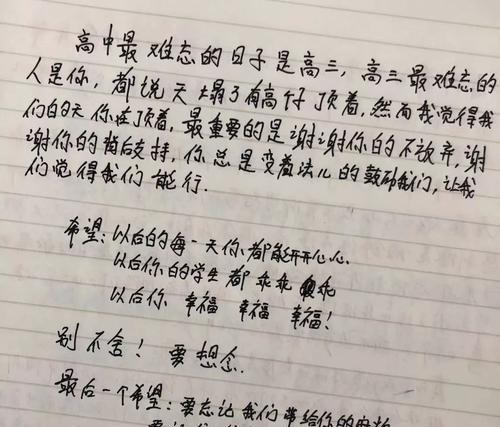 高中最难忘的日子是高三,高三最难忘的
人是你,都说天塌了有高个子顶着,然而我觉得我
们的天你在顶着,最重要的是谢谢你的不放弃,谢
谢你的背后支持,你总是变着法儿的鼓励我们,让我
们觉得我们能行.
希望:以后的每一天你都能开开心心.
以后你的学生都乖乖乖
以后你 幸福 幸福 幸福!
别不舍! 要想念.
最后一个希望:要忘记我们带给你的